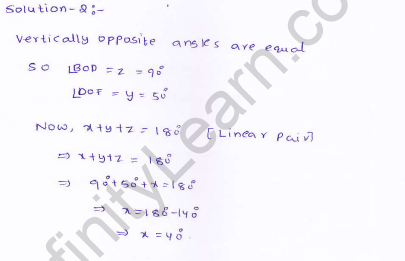 Solution-2:-
Vertically opposite angles are equal
SO ∠BOD = z = 90°
∠DOF = y = 50°
Now, x+y+z = 180° [Linear pair]
⇒ x+y+z = 180°
⇒ 90°+50°+x=180°
⇒ x=180°-140°
⇒ x=40°.
finityLearn.co